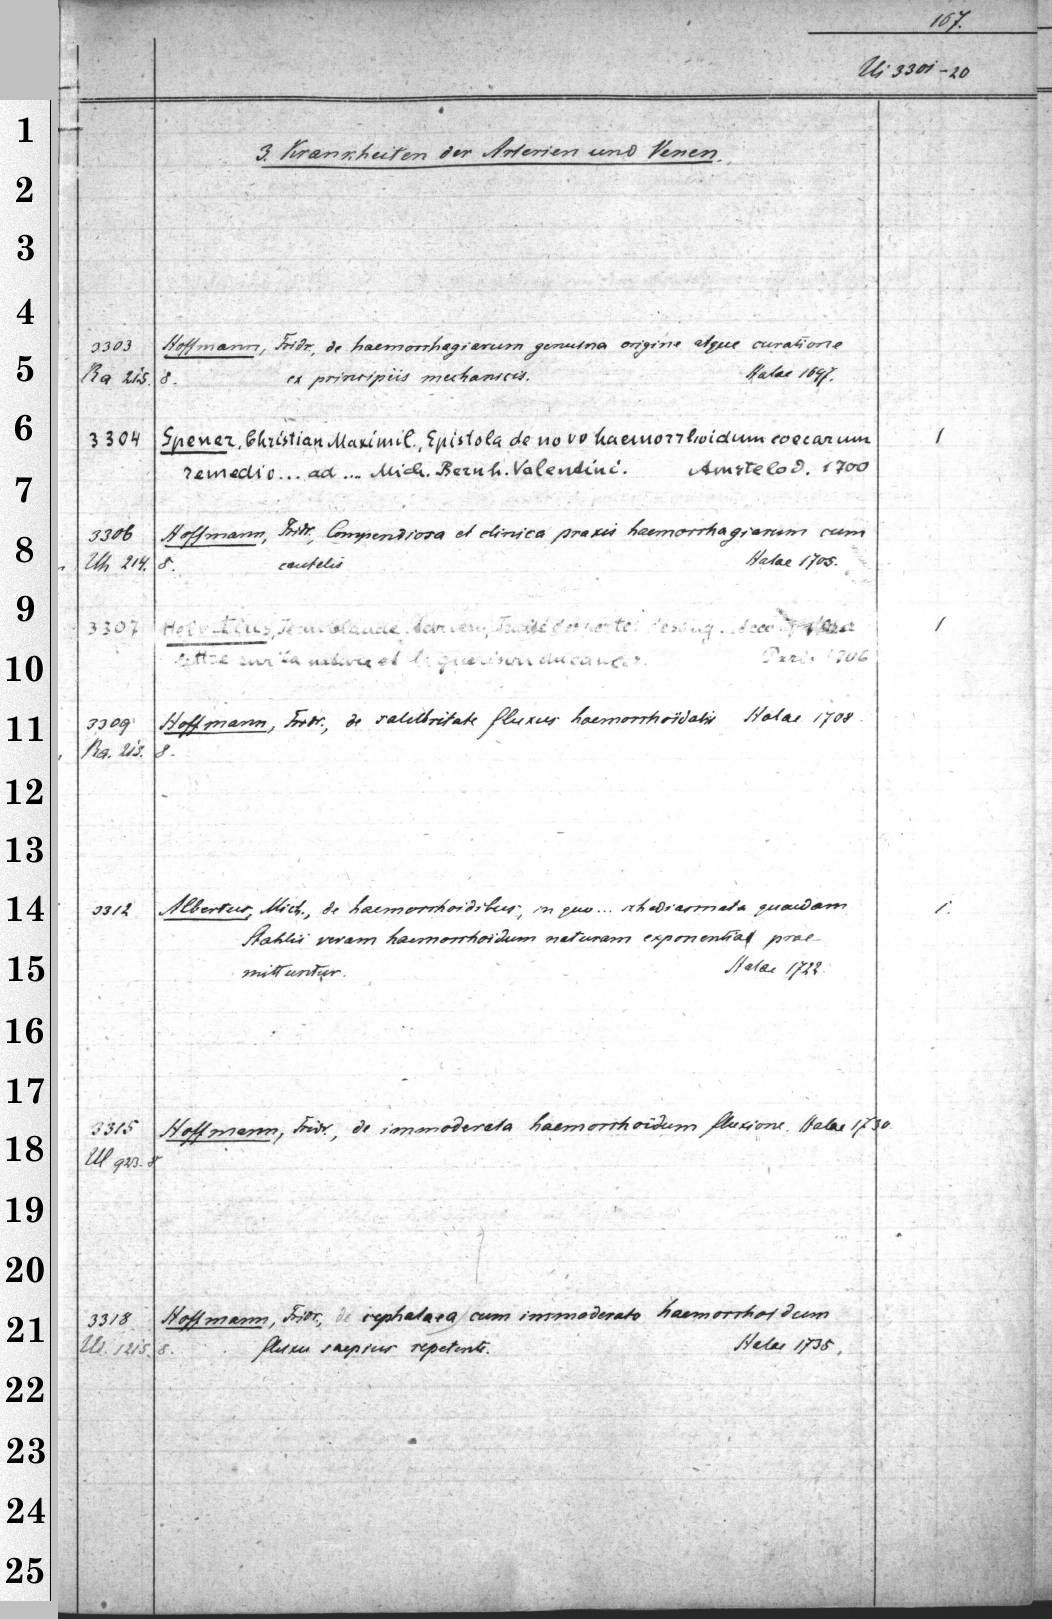 167.
Ui 3301-20
1
3. Krankheiten der Arterien und Venen.
2
3
4
3303 Hoffmann, Fridr., de haemorrhagiarum genuina origine atque curatione
5
Ra 215. 8. ex principiis mechanicis. Halae 1697.
6
3304 Spener, Christian Maximil., Epistola de novo haemorrhoidum coecarum 1
remedio... ad ... Mich. Bernh. Valentini. Amstelod. 1700
7
3306 Hoffmann, Fridr., Compendiosa et clinica praxis haemorrhagiarum cum
8
Uh 214. 8. cautelis Halae 1705.
9
3307 Helvetius, Jean Claude Adrien, Traité des pertes de sang. 1
10
Lettre sur la nature et la guérison du cancer. Paris 1706
11
3309 Hoffmann, Fridr., de salubritate fluxus haemorrhoidalis Halae 1708.
Ra. 213. 8.
12
13
14
3312 Albertus, Mich., de haemorrhoidibus, in quo... schediasmata quaedam 1.
Stahlii veram haemorrhoidum naturam exponentia prae-
15
mittuntur. Halae 1722.
16
17
3315 Hoffmann, Fridr., de immoderata haemorrhoidum fluxione. Halae 1730.
18
Ul 923. 8
19
20
3318 Hoffmann, Fridr., de cephalaea cum immoderato haemorrhoidum
21
Ui. 1215. 8. fluxu saepius repetente. Halae 1735.
22
23
24
25